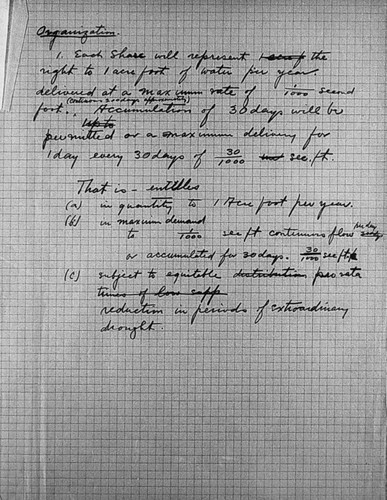 Organization.
1. Each Share will represent 1 acre f the
right to 1 acre foot of water per year.
delivered at a maximum rate of 1/1000 second
(Continuous 300 days approximately)
foot. Accumulation of 30 days will be
Up to
permitted or a maximum delivery for
1 day every 30 days of 30/1000 sec. ft.
That is - entitles
(a) in quantity to 1 Acre foot per year.
(b) in maximum demand
per day
to 1/1000 sec ft continuous flow
or accumulated for 30 days. 30/1000 sec ft
(c) subject to equitable distribution pro rata
times of low supp
reduction in periods of extraordinary
drought.